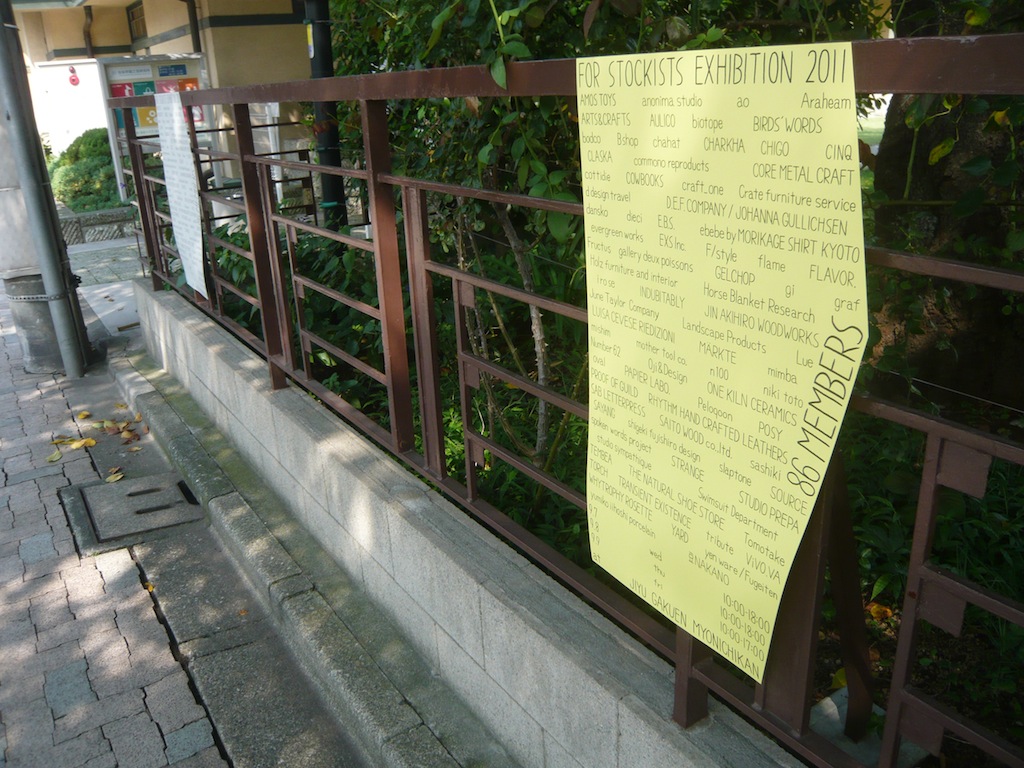 FOR STOCKISTS EXHIBITION 2011
AMOS TOYS anonima studio ao Araheam
ARTS&CRAFTS AULICO biotope BIRDS' WORDS
bodco Bshop chahat CHARKHA CHIGO CINQ
CLASKA commono reproducts CORE METAL CRAFT
cottide COWBOOKS craft_one Crate furniture service
d design travel D.E.F. COMPANY / JOHANNA GULLICHSEN
dansko dieci E.B.S. ebebe by MORIKAGE SHIRT KYOTO
evergreen works EXS Inc. F/style flame FLAVOR.
Fructus gallery deux poissons GELCHOP gi graf
Holz furniture and interior Horse Blanket Research
I rose INDUBITABLY JIN AKIHIRO WOODWORKS
June Taylor Company Landscape Products Lue
LUISA CEVESE RIEDIZIONI MARKTE mimba
mishim mother tool co. n100 niki toto
Number 62 Oji&Design ONE KILN CERAMICS
oval PAPIER LABO. Peloqoon POSY
PROOF OF GUILD RHYTHM HAND CRAFTED LEATHERS
SAB LETTERPRESS SAITO WOOD co.,ltd. sashiki
SAYAND Shigeki fujishiro design slaptone SOURCE
spoken words project STRANGE STUDIO PREPA
studio sympathique Swimsuit Department
TEMBEA THE NATURAL SHOE STORE tribute Tomotake
TORCH TRANSIENT EXISTENCE YARD ViVO,VA
WHYTROPHY ROSETTE yen ware / Fugeiten
yumiko iihoshi porcelain NAKANO
9.7 wed 10:00-18:00
9.8 thu 10:00-18:00
9.9 fri 10:00-17:00
at JIYU GAKUEN MYONICHIKAN
86 MEMBERS